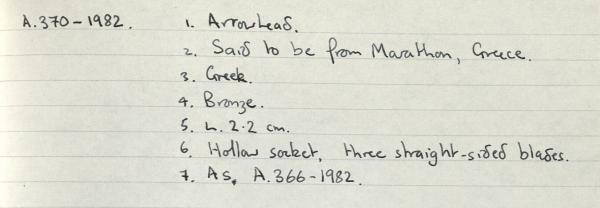 A.370-1982. 1. Arrowhead.
2. Said to be from Marathon, Greece.
3. Greek.
4. Bronze.
5. L. 2.2 cm.
6. Hollow socket, three straight-sided blades.
7. As, A.366-1982.